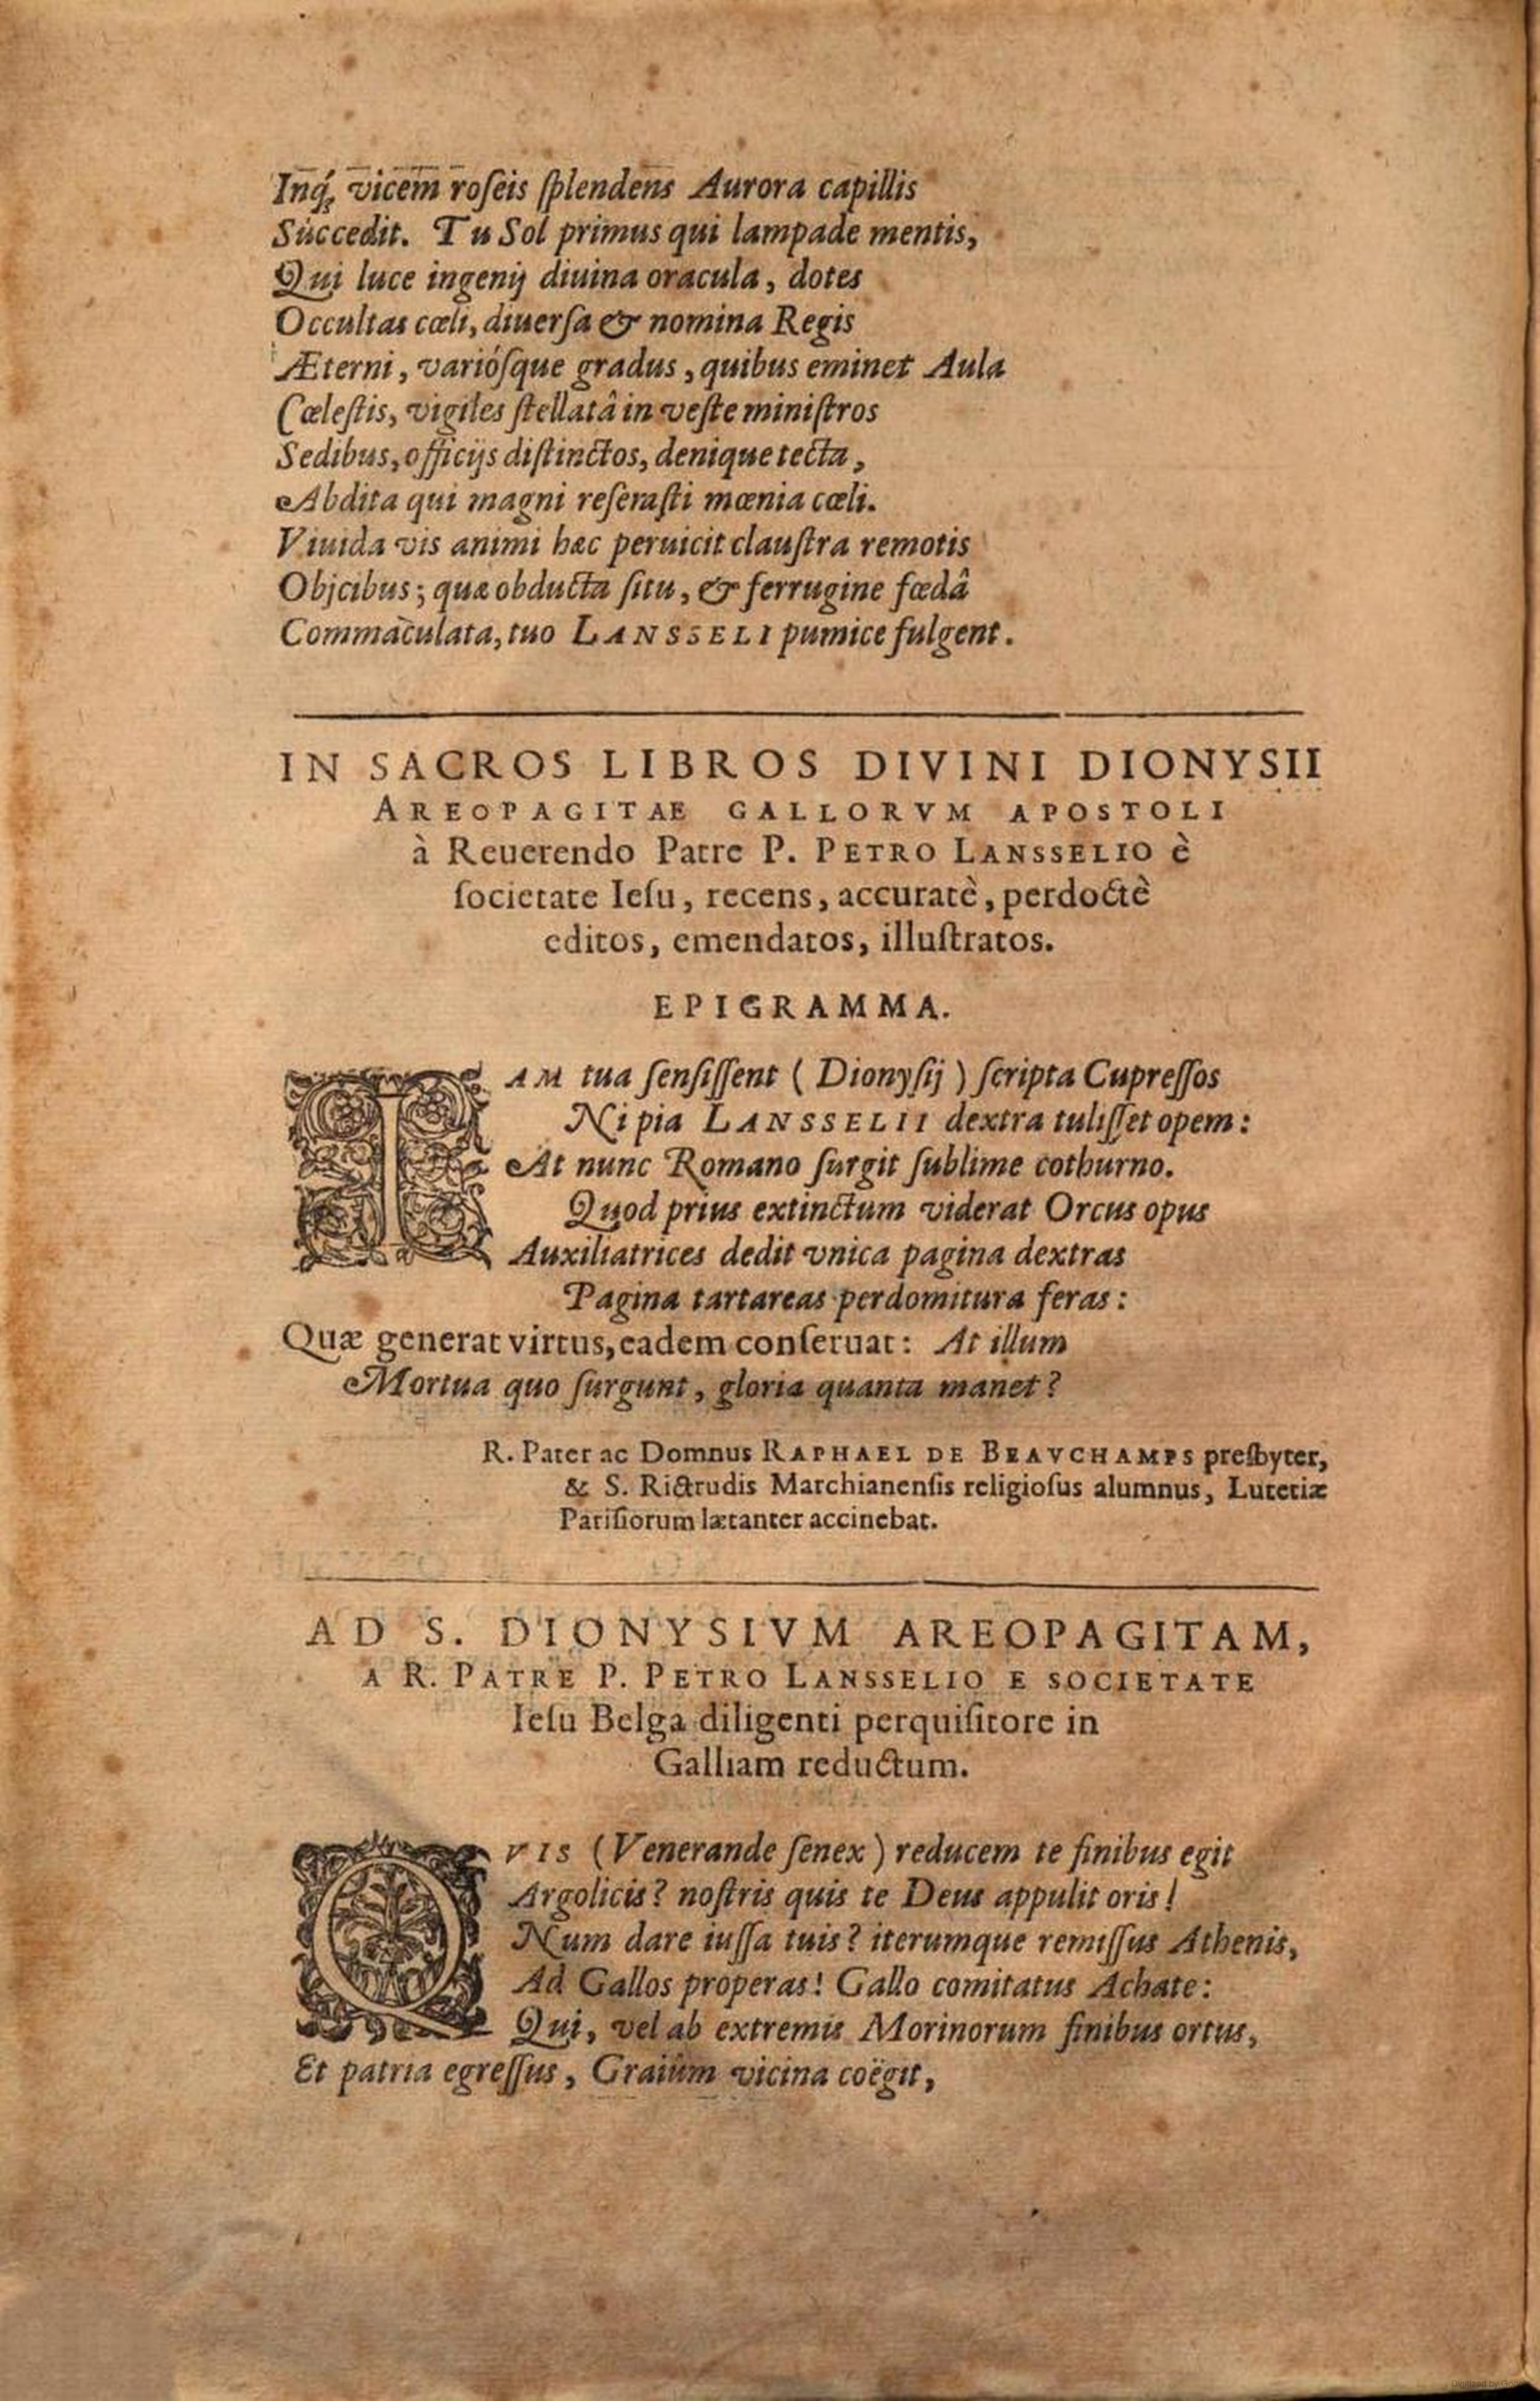 Inq́; vicem roſeis ſplendens Aurora capillis
Succedit. Tu Sol primus qui lampade mentis,
Qui luce ingenij diuina oracula, dotes
Occultas cœli, diuerſa & nomina Regis
Æterni, varióſque gradus, quibus eminet Aula
Cœleſtis, vigiles ſtellatâ in veſte miniſtros
Sedibus, officijs diſtinctos, denique tecta,
Abdita qui magni reſeraſti mœnia cœli.
Viuida vis animi hæc peruicit clauſtra remotis
Objcibus; quæ obducta ſitu, & ferrugine fœdâ
Commaculata, tuo LANSSELI pumice fulgent.
IN SACROS LIBROS DIVINI DIONYSII
AREOPAGITAE GALLORVM APOSTOLI
à Reuerendo Patre P. PETRO LANSSELIO è
ſocietate Ieſu, recens, accuratè, perdoctè
editos, emendatos, illuſtratos.
EPIGRAMMA.
IAM tua ſenſiſſent (Dionyſij) ſcripta Cupreſſos
Ni pia LANSSELII dextra tuliſſet opem:
At nunc Romano ſurgit ſublime cothurno.
Quod prius extinctum viderat Orcus opus
Auxiliatrices dedit vnica pagina dextras
Pagina tartareas perdomitura feras:
Quæ generat virtus, eadem conſeruat: At illum
Mortua quo ſurgunt, gloria quanta manet?
R. Pater ac Domnus RAPHAEL DE BEAVCHAMPS preſbyter,
& S. Rictrudis Marchianenſis religioſus alumnus, Lutetiæ
Pariſiorum lætanter accinebat.
AD S. DIONYSIVM AREOPAGITAM,
A R. PATRE P. PETRO LANSSELIO E SOCIETATE
Ieſu Belga diligenti perquiſitore in
Galliam reductum.
QVIS (Venerande ſenex) reducem te finibus egit
Argolicis? noſtris quis te Deus appulit oris!
Num dare iuſſa tuis? iterumque remiſſus Athenis,
Ad Gallos properas! Gallo comitatus Achate:
Qui, vel ab extremis Morinorum finibus ortus,
Et patria egreſſus, Graiûm vicina coëgit,